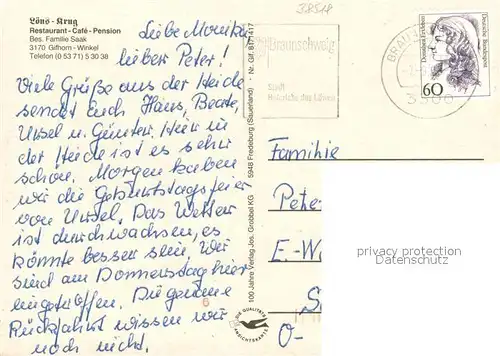 Löns-Krug
Restaurant-Café-Pension
Bes. Familie Saak
3170 Gifhorn-Winkel
Telefon (0 53 71) 5 30 38
Liebe Monika,
lieber Peter!
Viele Grüße aus der Heide
sendet Euch Hans, Beate,
Ursel u. Günter. Hier in
der Heide ist es sehr
schön. Morgen haben
wir die Geburtstagsfeier
von Ursel. Das Wetter
ist durchwachsen, es
könnte besser sein. Wir
sind am Donnerstag hier
eingetroffen. Die genaue
Rückfahrt wissen wir
noch nicht.
100 Jahre Verlag Jos. Grobbel KG 5948 Fredeburg (Sauerland)
DIE QUALITÄTS
ANSICHTSKARTE
Braunschweig
Stadt
Heinrichs des Löwen
Dorothea Erxleben
Deutsche Bundespost
60
Familie
Pete
E.-W
O-
privacy protection
Datenschutz